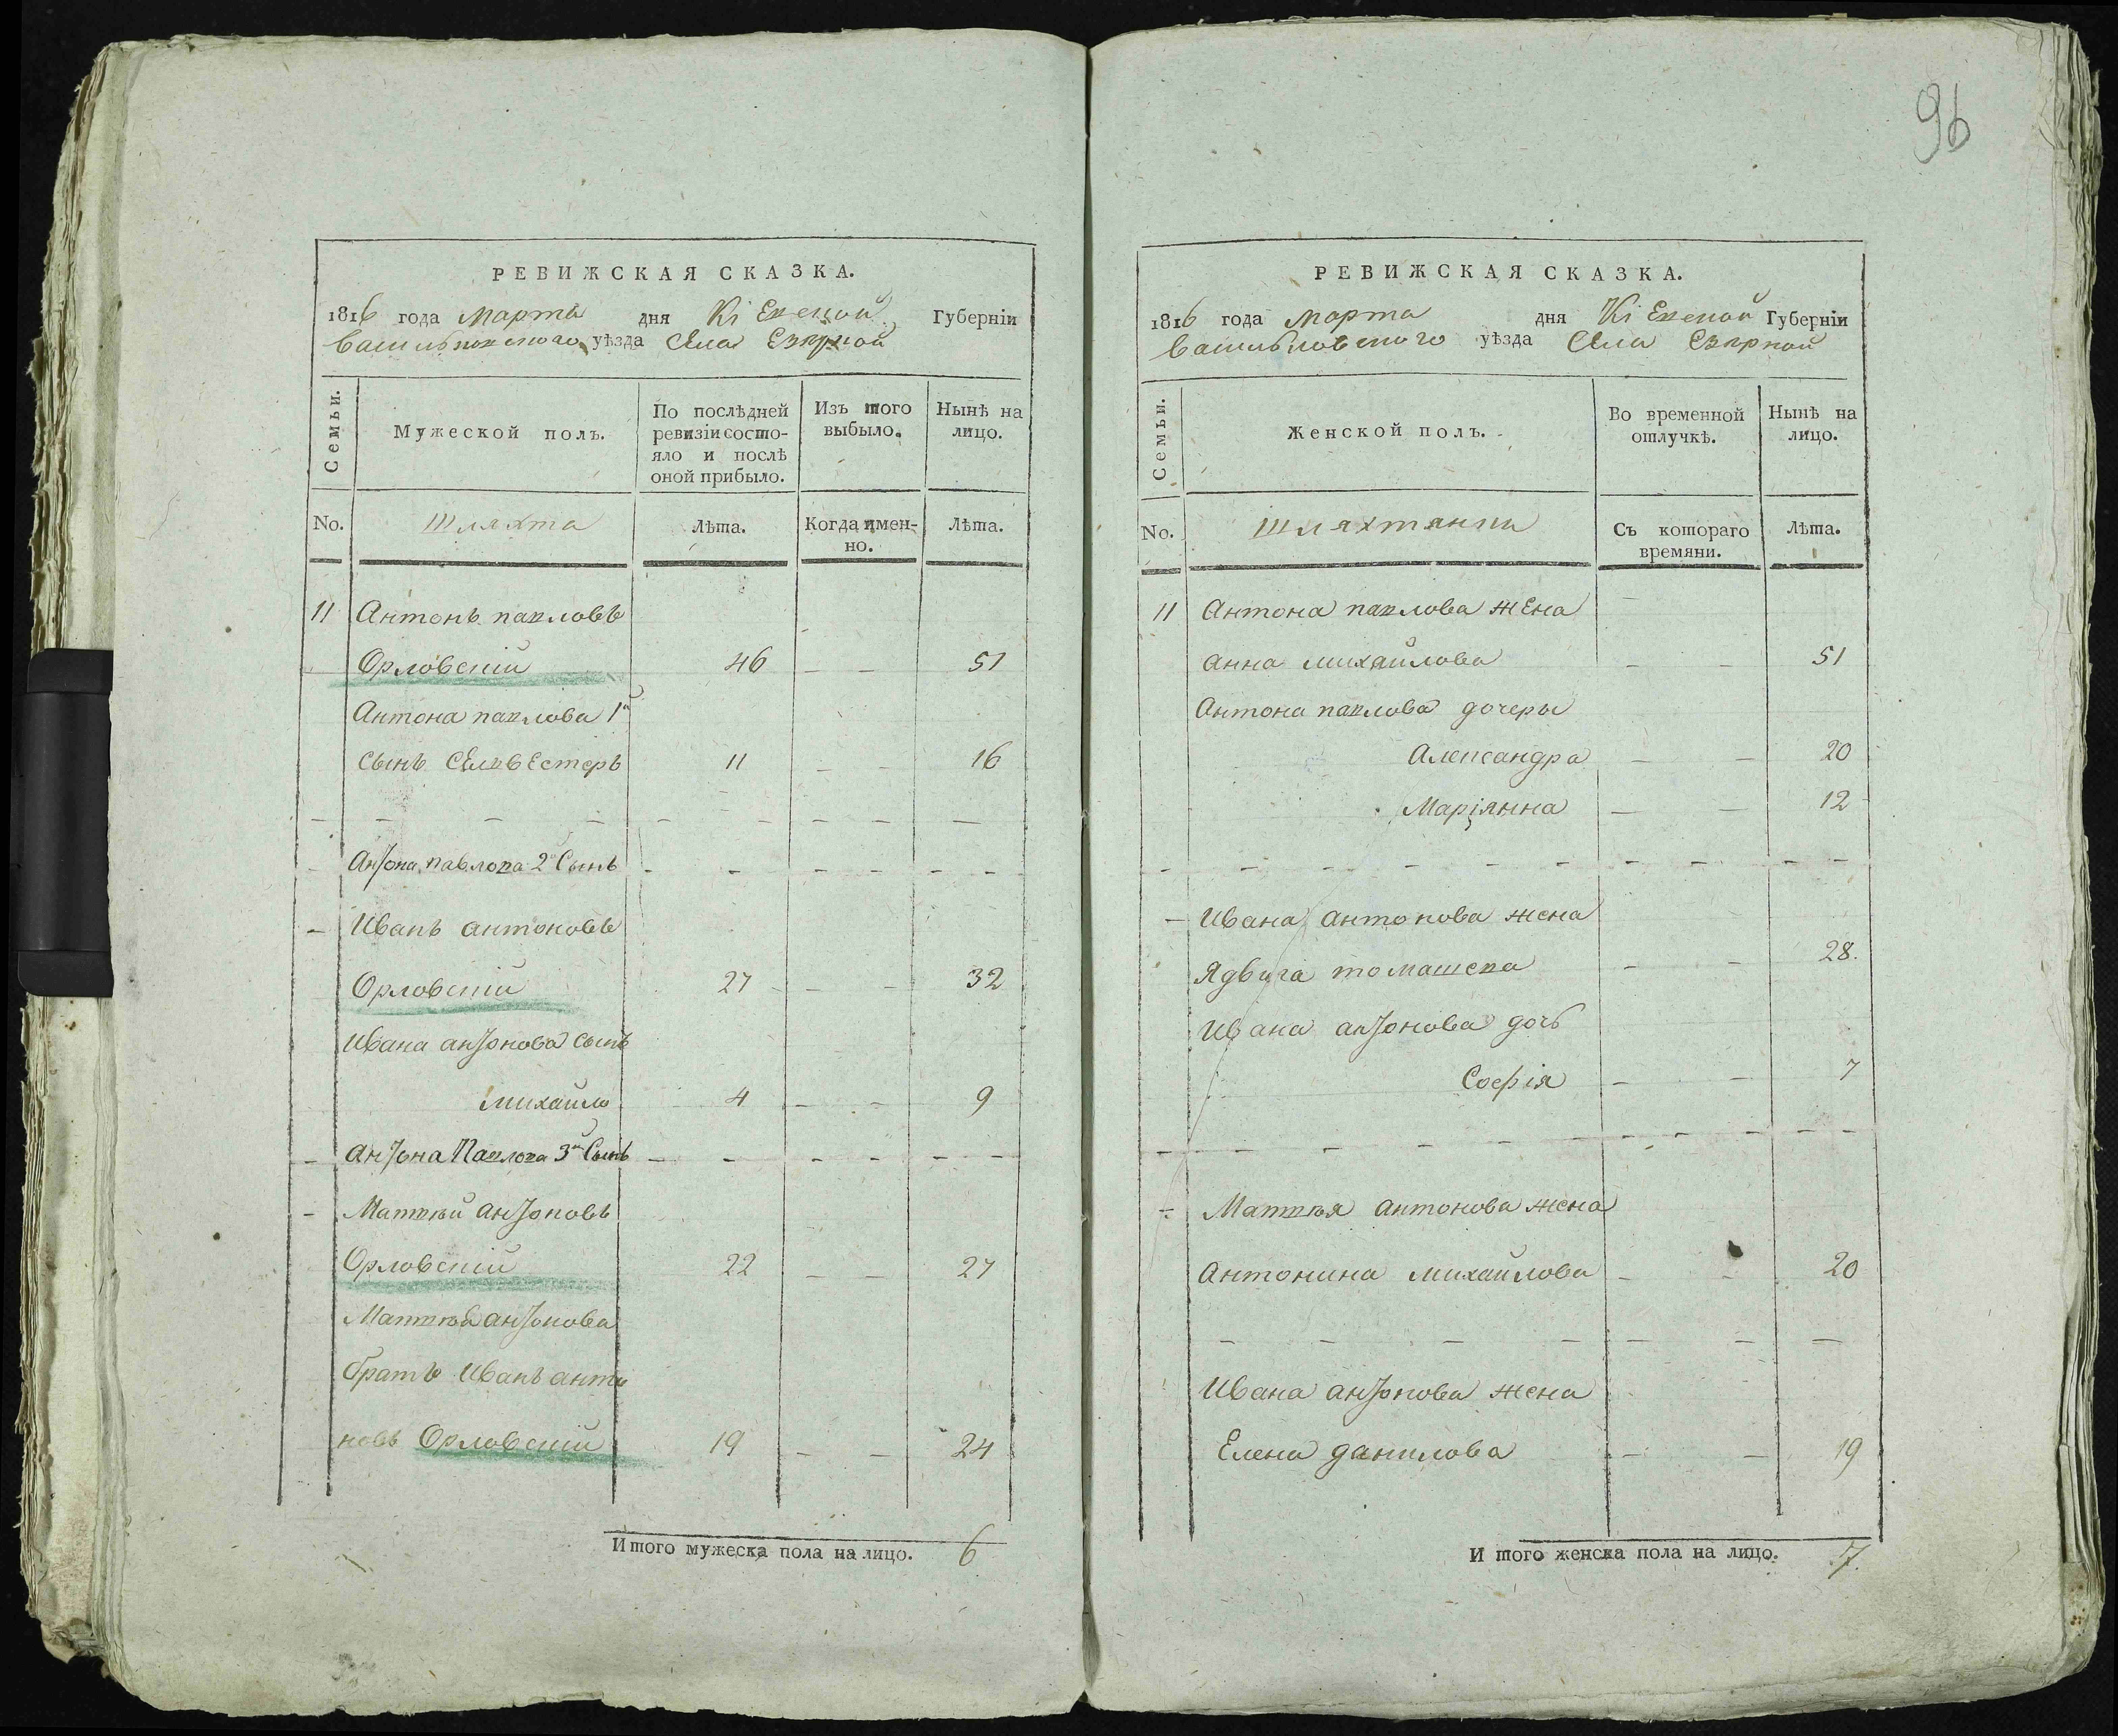 96
РЕВИЖСКАЯ СКАЗКА.
1816 года Марта дня Кіевской Губерніи
Васильковского уѣзда Села Езѣрной
Семьи.
Мужеской полъ.
По послѣдней ревизіи состояло и послѣ оной прибыло.
Изъ того выбыло.
Нынѣ на лицо.
No.
Шляхта
Лѣта.
Когда имен-
но.
Лѣта.
11 Антонъ павловъ
Орловскій 46 — — 51
Антона павлова 1й
сынъ Селивестеръ 11 — — 16
Антона павлова 2й Сынъ
Иванъ антоновъ
Орловскій 27 — — 32
Ивана антонова сынъ
михайло 4 — — 9
антона Павлова 3й Сынъ
Матвѣй антоновъ
Орловскій 22 — — 27
Матвѣя антонова
братъ Иванъ анто
новъ Орловскій 19 — — 24
Итого мужеска пола на лицо. 6
РЕВИЖСКАЯ СКАЗКА.
1816 года марта дня Кіевской Губерніи
Васильковского уѣзда Села Езѣрной
Семьи.
Женской полъ.
Во временной отлучкѣ.
Нынѣ на лицо.
No.
Шляхтянки
Съ котораго
времяни.
Лѣта.
11 Антона павлова жена
анна михайлова — — 51
Антона павлова дочеры
Александра — — 20
Маріянна — — 12
Ивана антонова жена
Ядвига томашева — — 28.
Ивана антонова дочь
Софія — — 7
Матвѣя антонова жена
антонина михайлова — — 20
Ивана антонова жена
Елена данилова — — 19
И того женска пола на лицо. 7.